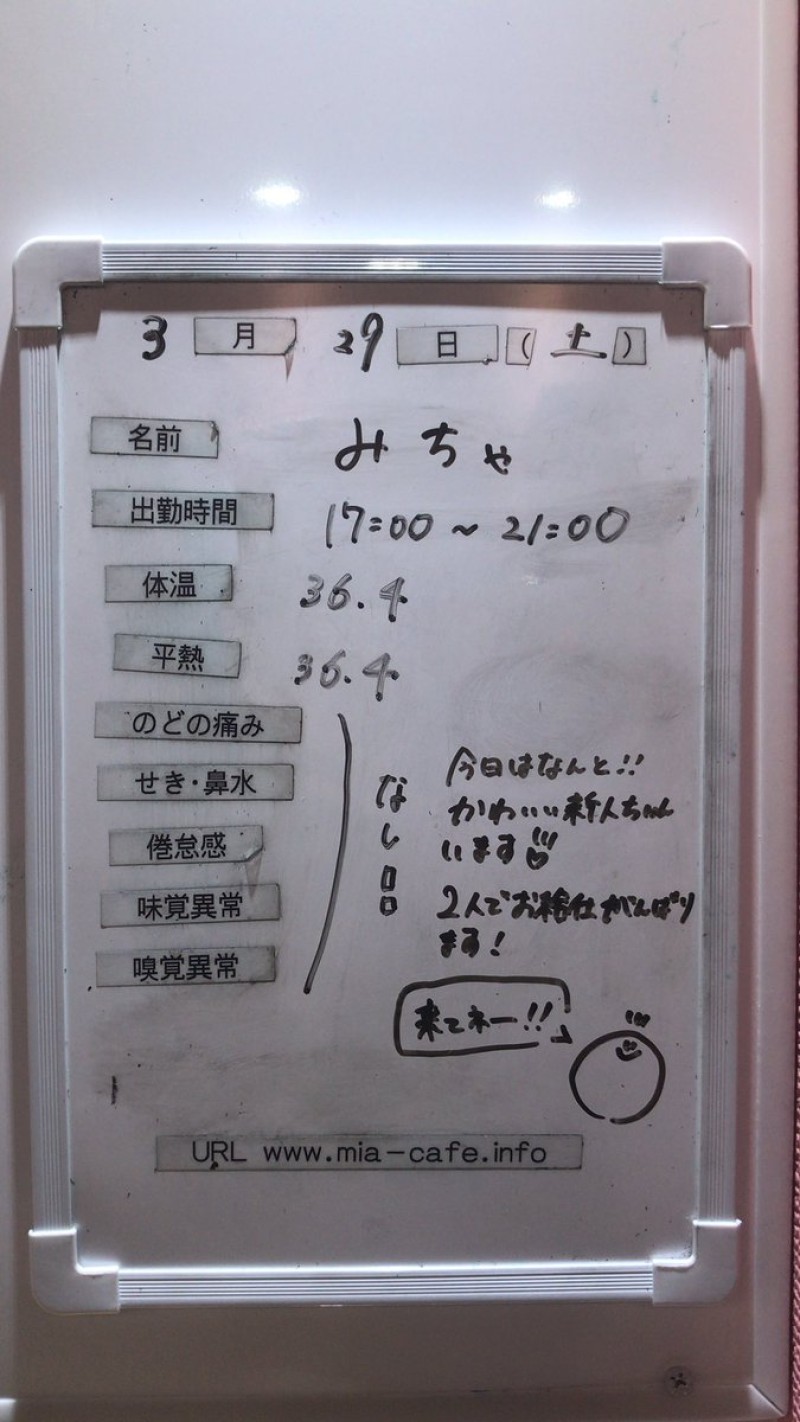 3月 29日(土)
名前 みちゃ
出勤時間 17:00 ~ 21:00
体温 36.4
平熱 36.4
のどの痛み
せき・鼻水
倦怠感
味覚異常
嗅覚異常
なし
今日はなんと!!
かわいい新人ちゃん
います
2人でお給仕がんばり
ます!
来てネー!!
URL www.mia-cafe.info